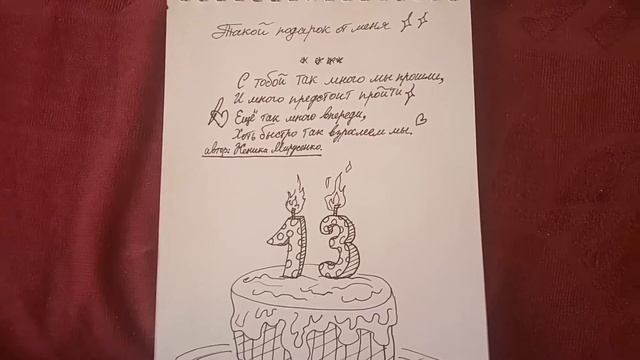 Такой подарок от меня
* * * *
С тобой так много мы прошли,
И много предстоит пройти
Ещё так много впереди,
Хоть быстро так взрослеем мы.
автор:
13